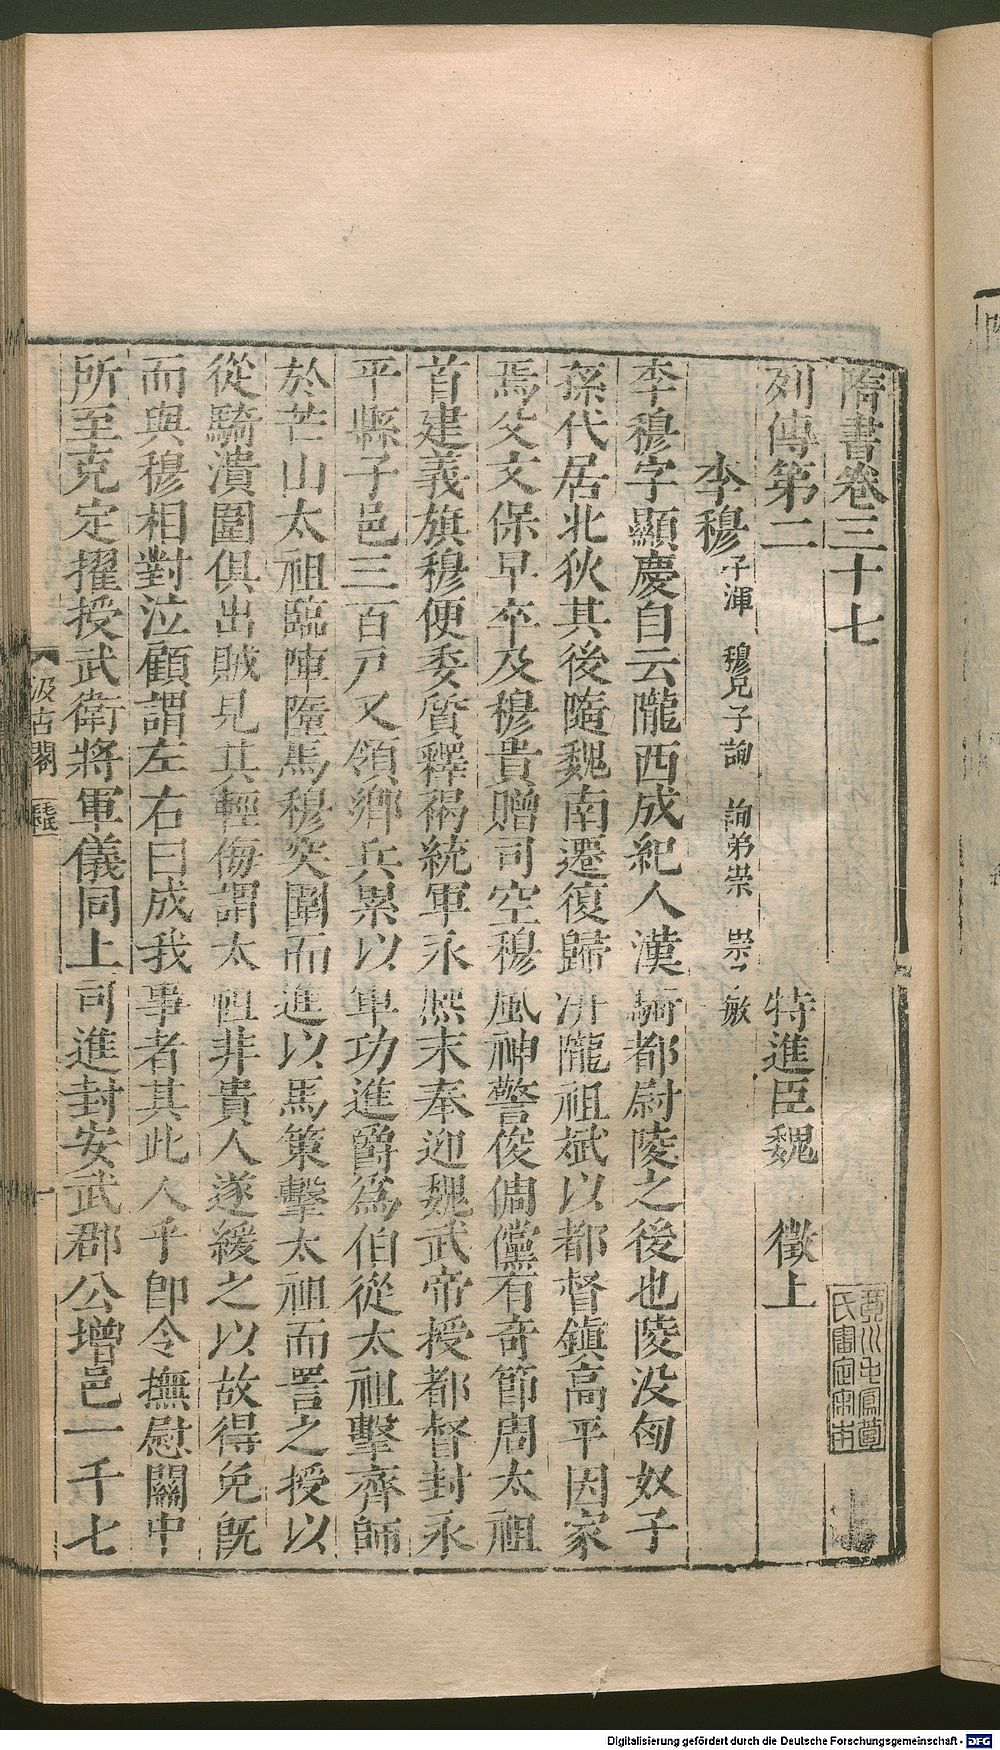 隋書卷三十七
列傳第二　特進臣魏　徵上
李穆 子渾　穆兄子詢　詢弟崇　崇子敏
李穆字顯慶自云隴西成紀人漢騎都尉陵之後也陵没匈奴子
孫代居北狄其後隨魏南遷復歸汧隴祖斌以都督鎮高平因家
焉父文保早卒及穆貴贈司空穆風神警俊倜儻有奇節周太祖
首建義旗穆便委質釋褐統軍永熙末奉迎魏武帝授都督封永
平縣子邑三百戸又領鄉兵累以軍功進爵爲伯從太祖擊齊師
於芒山太祖臨陣墮馬穆突圍而進以馬策擊太祖而詈之授以
從騎潰圍俱出賊見其輕侮謂太祖非貴人遂緩之以故得免旣
而與穆相對泣顧謂左右曰成我事者其此人乎卽令撫慰關中
所至克定擢授武衛將軍儀同上司進封安武郡公增邑一千七
汲古閣
毛氏
Digitalisierung gefördert durch die Deutsche Forschungsgemeinschaft - DFG